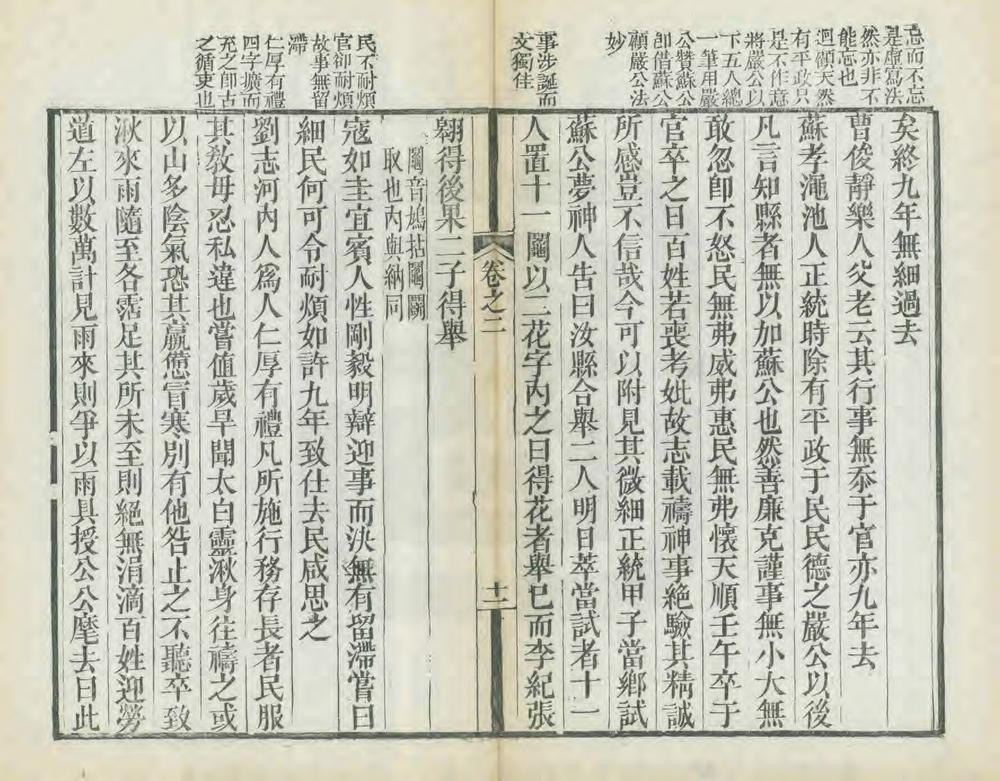 忘而不忘
是虛寫法
然亦非不
能忘也
迴顧天然
有平政只
是不作意
將嚴公以
下五人總
一筆用嚴
公贊蘇公
卽借蘇公
顧嚴公法
妙
事涉誕而
文獨佳
民不耐煩
官卻耐煩
故事無留
滯
仁厚有禮
四字擴而
充之卽古
之循吏也
矣終九年無細過去
曹俊靜樂人父老云其行事無忝于官亦九年去
蘇孝澠池人正統時除有平政于民民德之嚴公以後
凡言知縣者無以加蘇公也然善廉克謹事無小大無
敢忽卽不怒民無弗威弗惠民無弗懷天順壬午卒于
官卒之日百姓若喪考妣故志載禱神事絶驗其精誠
所感豈不信哉今可以附見其微細正統甲子當鄉試
蘇公夢神人告曰汝縣合舉二人明日萃當試者十一
人置十一鬮以二花字內之曰得花者舉已而李紀張
卷之二
十二
翱得後果二子得舉
鬮音鳩拈鬮鬮
取也內與納同
寇如圭宜賓人性剛毅明辯迎事而決無有留滯嘗曰
細民何可令耐煩如許九年致仕去民咸思之
劉志河內人爲人仁厚有禮凡所施行務存長者民服
其敎毋忍私違也嘗值歲旱聞太白靈湫身往禱之或
以山多陰氣恐其羸憊冒寒別有他咎止之不聽卒致
湫來雨隨至各霑足其所未至則絕無涓滴百姓迎勞
道左以數萬計見雨來則爭以雨具授公公麾去曰此